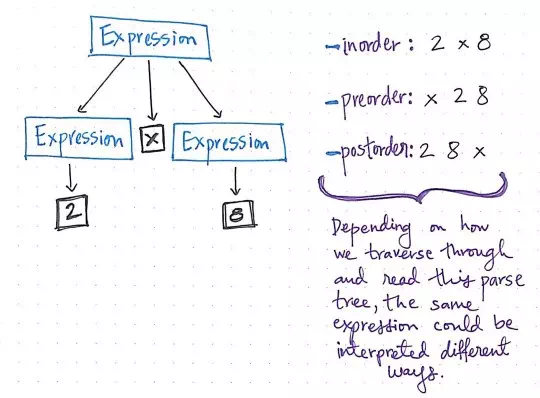 Expression
Expression
x
Expression
2
8
- inorder: 2 x 8
- preorder: x 2 8
- postorder: 2 8 x
Depending on how
we traverse through
and read this parse
tree, the same
expression could be
interpreted different
ways.